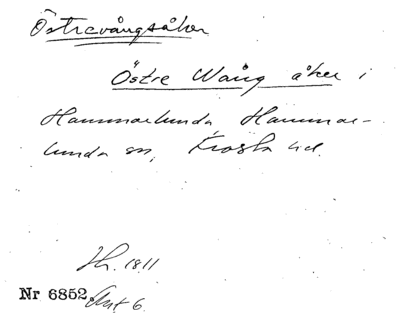 Östrevångsåker
Östre Wång åker i
Hammarlunda Hammar-
lunda sn, Frosta hd.
Jh. 1811
Nr 6852 Akt 6.